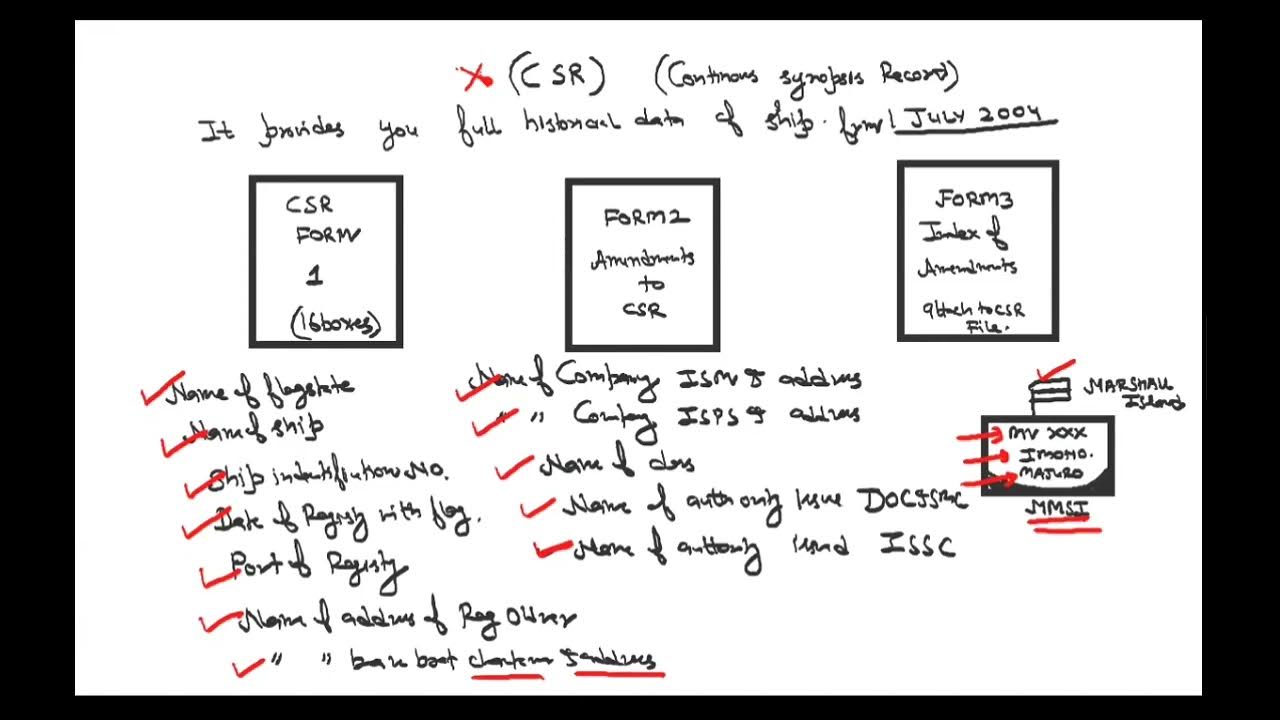 (CSR) (Continous synopsis Record)
It provides you full historical data of ship. from 1 JULY 2004
CSR
FORM
1
(16boxes)
FORM2
Amendments
to
CSR
FORM3
Index of
Amendments
attach to CSR
File.
Name of flagstate
Name of ship
Ship indentifiction NO.
Date of Registy with flag.
Port of Registy
Name of address of Reg Owner
" " bare boat charterer & address
Name of Company ISM & address
" " Company ISPS & address
Name of class
Name of authority issue DOC ISMC
Name of authority issued ISSC
MARSHALL
Island
MV XXX
IMONO.
MAJURO
MMSI